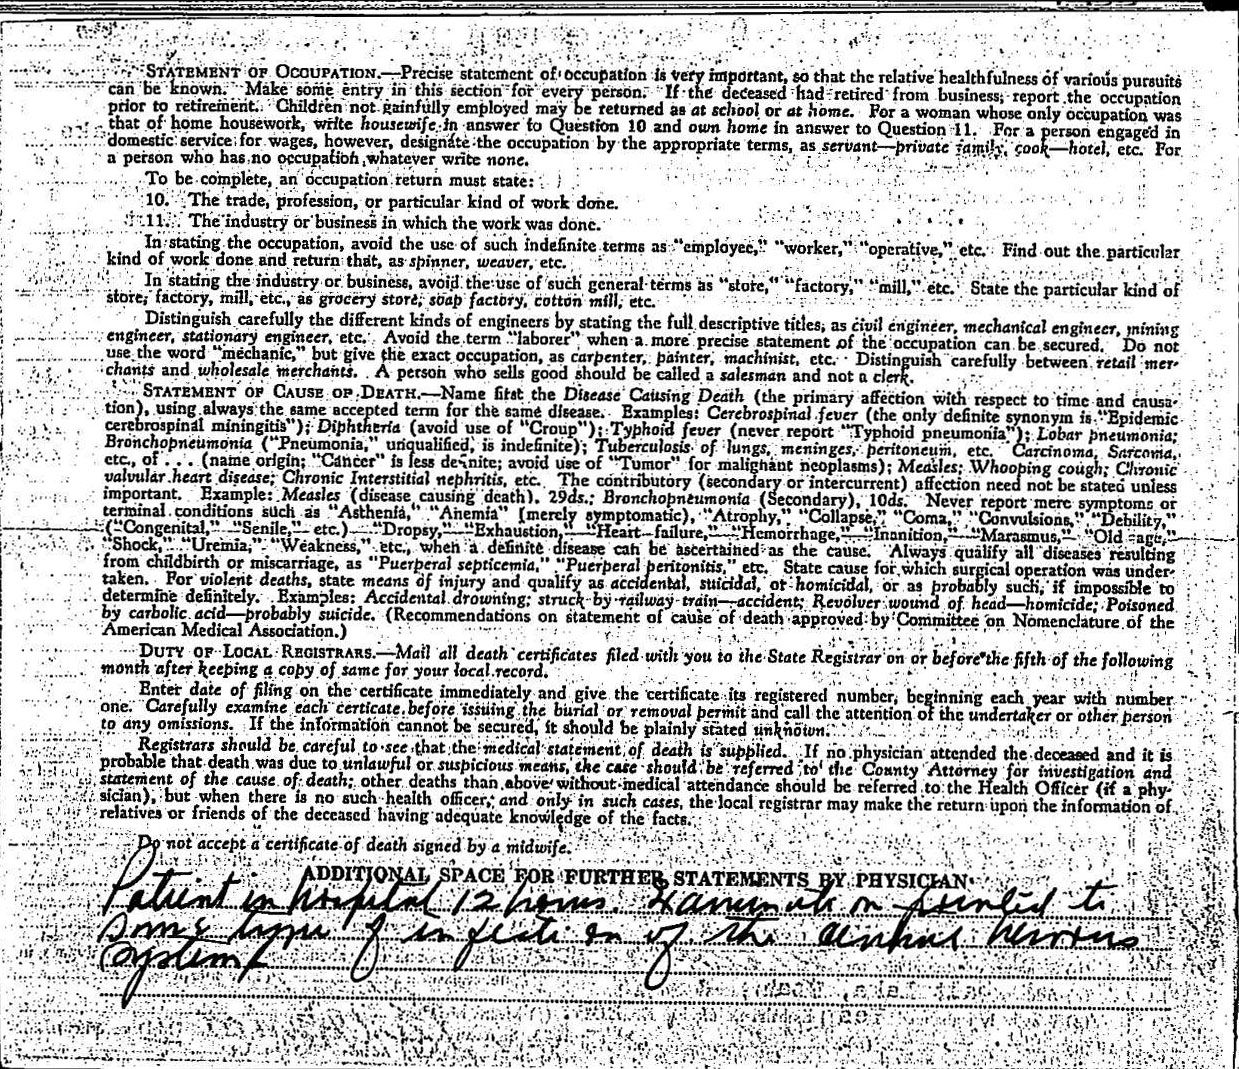 STATEMENT OF OCCUPATION.—Precise statement of occupation is very important, so that the relative healthfulness of various pursuits
can be known. Make some entry in this section for every person. If the deceased had retired from business, report the occupation
prior to retirement. Children not gainfully employed may be returned as at school or at home. For a woman whose only occupation was
that of home housework, write housewife in answer to Question 10 and own home in answer to Question 11. For a person engaged in
domestic service for wages, however, designate the occupation by the appropriate terms, as servant—private family, cook—hotel, etc. For
a person who has no occupation whatever write none.
To be complete, an occupation return must state:
10. The trade, profession, or particular kind of work done.
11. The industry or business in which the work was done.
In stating the occupation, avoid the use of such indefinite terms as "employee," "worker," "operative," etc. Find out the particular
kind of work done and return that, as spinner, weaver, etc.
In stating the industry or business, avoid the use of such general terms as "store," "factory," "mill," etc. State the particular kind of
store, factory, mill, etc., as grocery store, soap factory, cotton mill, etc.
Distinguish carefully the different kinds of engineers by stating the full descriptive titles, as civil engineer, mechanical engineer, mining
engineer, stationary engineer, etc. Avoid the term "laborer" when a more precise statement of the occupation can be secured. Do not
use the word "mechanic," but give the exact occupation, as carpenter, painter, machinist, etc. Distinguish carefully between retail mer-
chants and wholesale merchants. A person who sells good should be called a salesman and not a clerk.
STATEMENT OF CAUSE OF DEATH.—Name first the Disease Causing Death (the primary affection with respect to time and causa-
tion), using always the same accepted term for the same disease. Examples: Cerebrospinal fever (the only definite synonym is "Epidemic
cerebrospinal miningitis"); Diphtheria (avoid use of "Croup"); Typhoid fever (never report "Typhoid pneumonia"); Lobar pneumonia;
Bronchopneumonia ("Pneumonia," unqualified, is indefinite); Tuberculosis of lungs, meninges, peritoneum, etc. Carcinoma, Sarcoma,
etc., of . . . (name origin; "Cancer" is less definite; avoid use of "Tumor" for malignant neoplasms); Measles; Whooping cough; Chronic
valvular heart disease; Chronic Interstitial nephritis, etc. The contributory (secondary or intercurrent) affection need not be stated unless
important. Example: Measles (disease causing death), 29ds.; Bronchopneumonia (Secondary), 10ds. Never report mere symptoms or
terminal conditions such as "Asthenia," "Anemia" [merely symptomatic), "Atrophy," "Collapse," "Coma," "Convulsions," "Debility,"
("Congenital," "Senile," etc.) "Dropsy," "Exhaustion," "Heart failure," "Hemorrhage," "Inanition," "Marasmus," "Old age,"
"Shock," "Uremia," "Weakness," etc., when a definite disease can be ascertained as the cause. Always qualify all diseases resulting
from childbirth or miscarriage, as "Puerperal septicemia," "Puerperal peritonitis," etc. State cause for which surgical operation was under-
taken. For violent deaths, state means of injury and qualify as accidental, suicidal, or homicidal, or as probably such, if impossible to
determine definitely. Examples: Accidental drowning; struck by railway train—accident; Revolver wound of head—homicide; Poisoned
by carbolic acid—probably suicide. (Recommendations on statement of cause of death approved by Committee on Nomenclature of the
American Medical Association.)
DUTY OF LOCAL REGISTRARS.—Mail all death certificates filed with you to the State Registrar on or before the fifth of the following
month after keeping a copy of same for your local record.
Enter date of filing on the certificate immediately and give the certificate its registered number, beginning each year with number
one. Carefully examine each certicate before issuing the burial or removal permit and call the attention of the undertaker or other person
to any omissions. If the information cannot be secured, it should be plainly stated unknown.
Registrars should be careful to see that the medical statement of death is supplied. If no physician attended the deceased and it is
probable that death was due to unlawful or suspicious means, the case should be referred to the County Attorney for investigation and
statement of the cause of death; other deaths than above without medical attendance should be referred to the Health Officer (if a phy-
sician), but when there is no such health officer, and only in such cases, the local registrar may make the return upon the information of
relatives or friends of the deceased having adequate knowledge of the facts.
Do not accept a certificate of death signed by a midwife.
ADDITIONAL SPACE FOR FURTHER STATEMENTS BY PHYSICIAN
Patient in hospital 12 hours. Examination pointed to
some type of infection of the central nervous
system